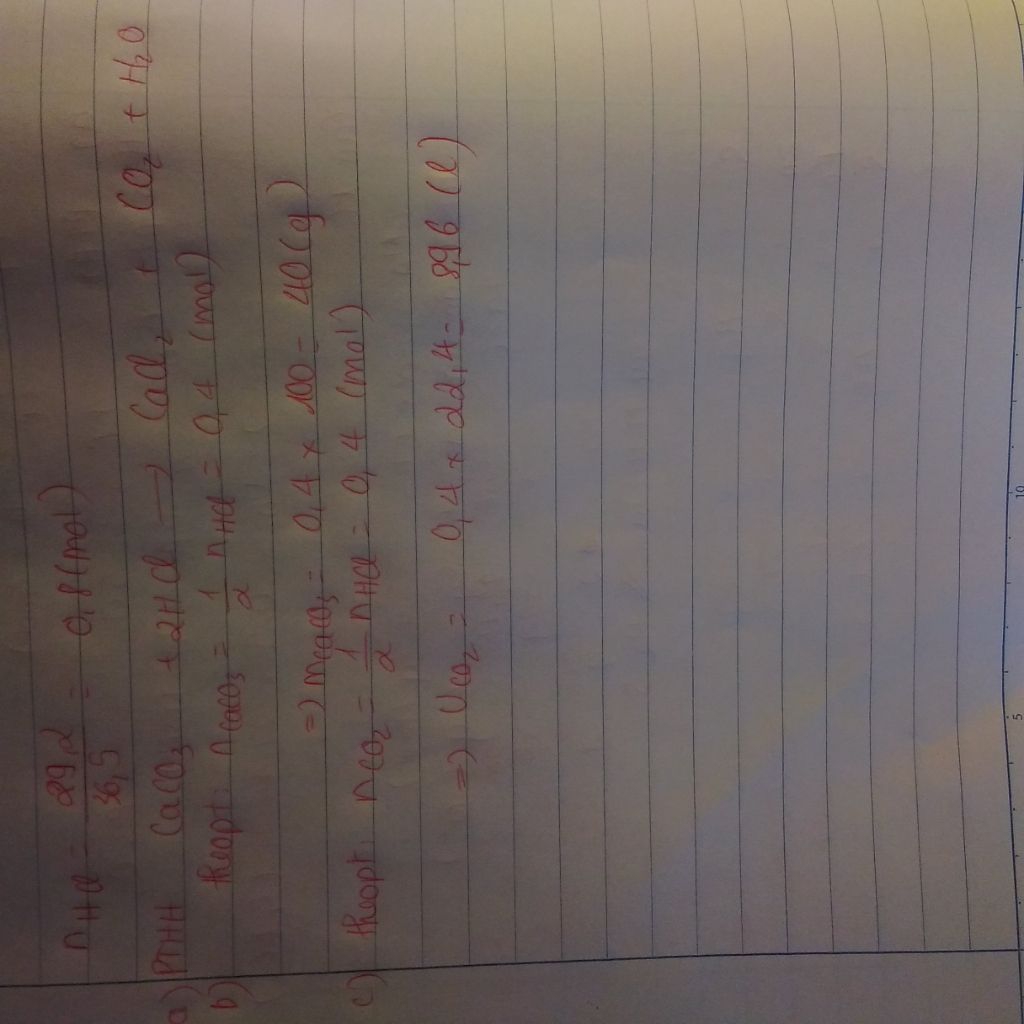 nHCl = 29,2 / 36,5 = 0,8 (mol)
a) PTHH CaCO3 + 2HCl → CaCl2 + CO2 + H2O
b) theopt: nCaCO3 = 1/2 nHCl = 0,4 (mol)
=> mCaCO3 = 0,4 x 100 = 40 (g)
c) theopt: nCO2 = 1/2 nHCl = 0,4 (mol)
=> VCO2 = 0,4 x 22,4 = 8,96 (l)
5
10